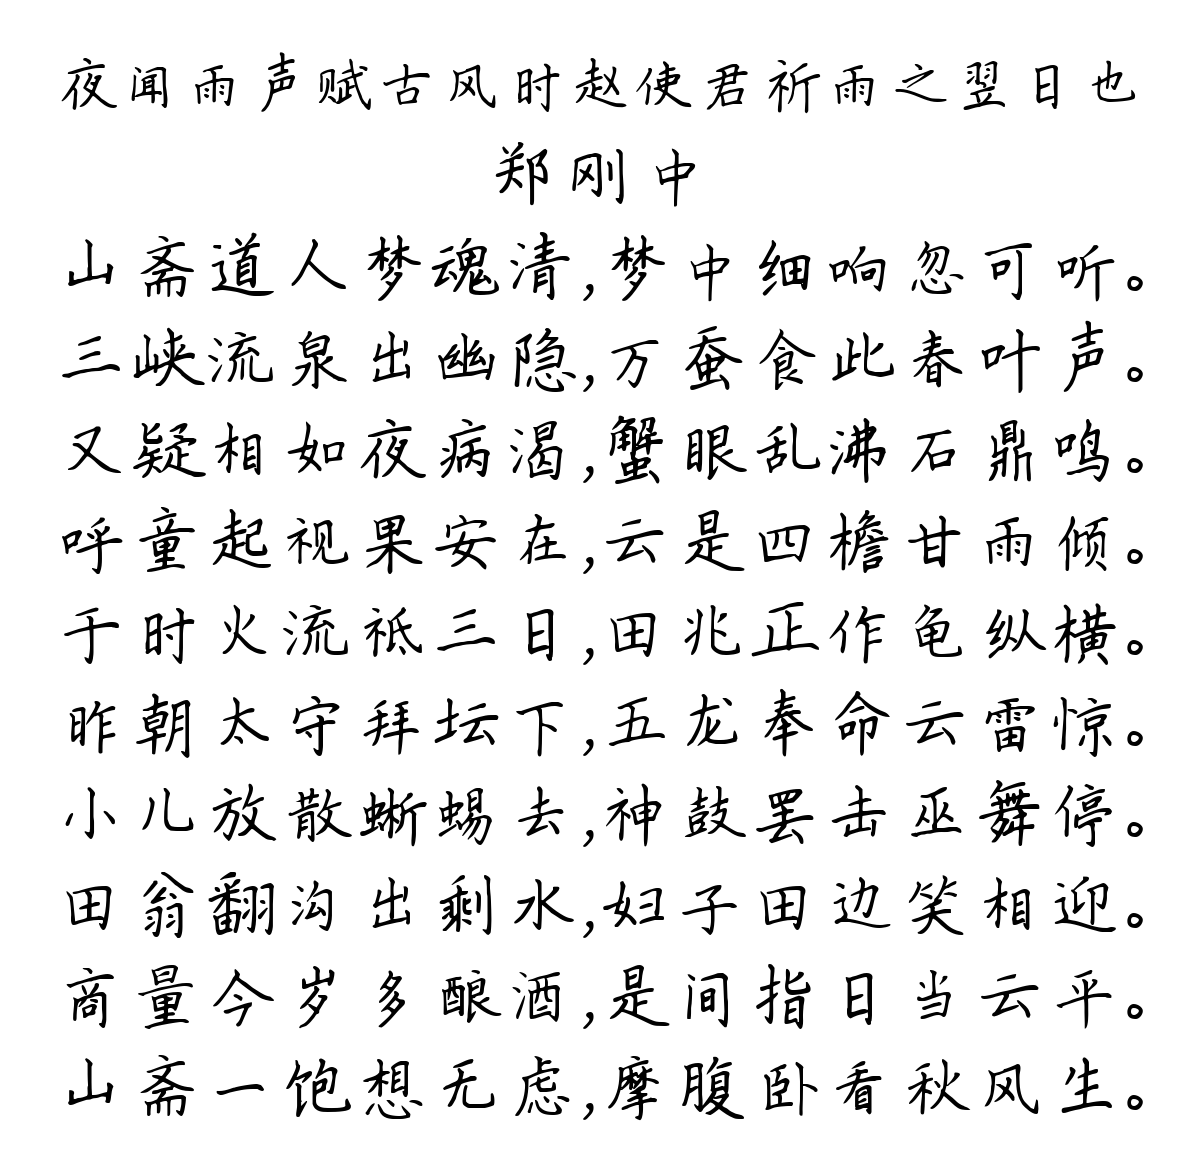 夜闻雨声赋古风时赵使君祈雨之翌日也
郑刚中
山斋道人梦魂清,梦中细响忽可听。
三峡流泉出幽隐,万蚕食此春叶声。
又疑相如夜病渴,蟹眼乱沸石鼎鸣。
呼童起视果安在,云是四檐甘雨倾。
于时火流祗三日,田兆正作龟纵横。
昨朝太守拜坛下,五龙奉命云雷惊。
小儿放散蜥蜴去,神鼓罢击巫舞停。
田翁翻沟出剩水,妇子田边笑相迎。
商量今岁多酿酒,是间指日当云平。
山斋一饱想无虑,摩腹卧看秋风生。